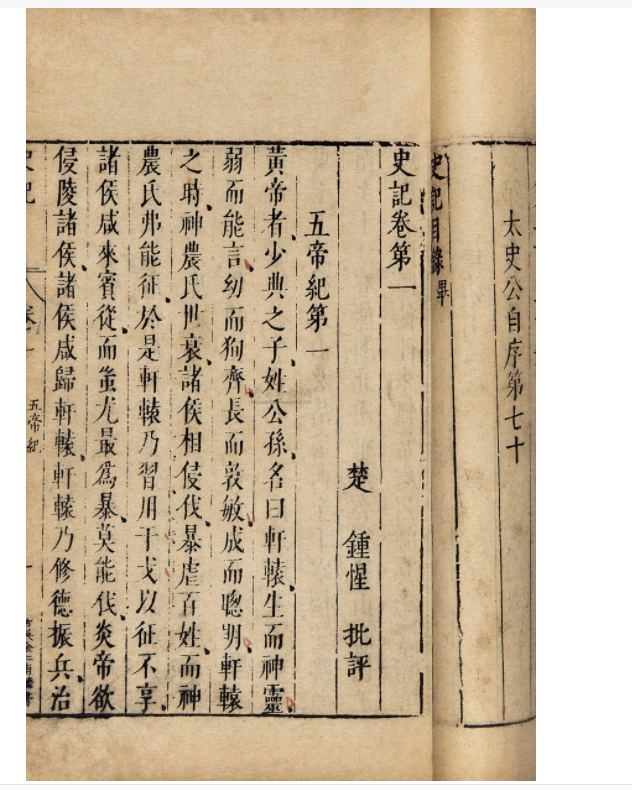 太史公自序第七十
史記目錄畢
史記卷第一
楚 鍾惺 批評
五帝紀第一
黃帝者少典之子姓公孫名曰軒轅生而神靈
弱而能言幼而狥齊長而敦敏成而聰明軒轅
之時神農氏世衰諸侯相侵伐暴虐百姓而神
農氏弗能征於是軒轅乃習用干戈以征不享
諸侯咸來賓從而蚩尤最爲暴莫能伐炎帝欲
侵陵諸侯諸侯咸歸軒轅軒轅乃修德振兵治
史記 卷一 五帝紀